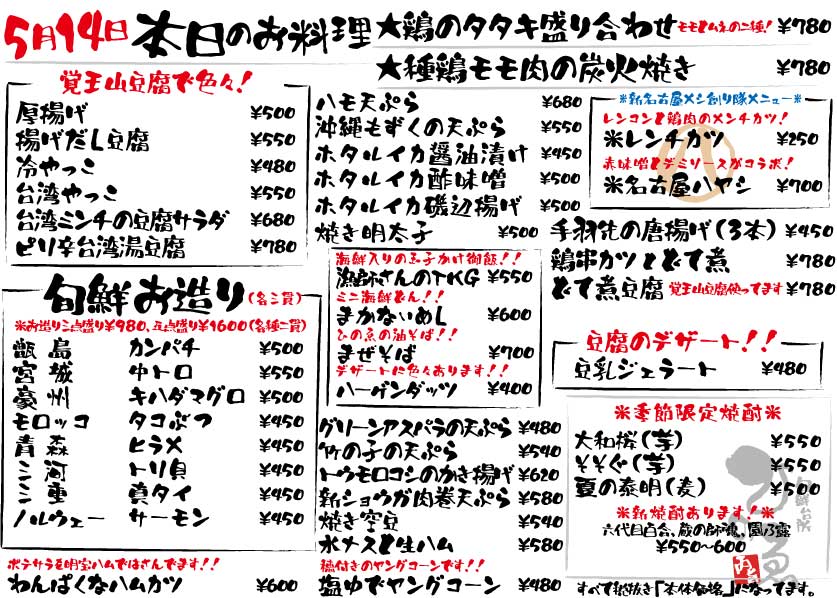 5月14日 本日のお料理
★鶏のタタキ盛り合わせ モモとムネの二種! ¥780
★種鶏モモ肉の炭火焼き ¥780
覚王山豆腐で色々!
厚揚げ ¥500
揚げだし豆腐 ¥550
冷やっこ ¥480
台湾やっこ ¥550
台湾ミンチの豆腐サラダ ¥680
ピリ辛台湾湯豆腐 ¥780
旬鮮お造り(各二貫)
※お造り三点盛り¥980、五点盛り¥1600(各種二貫)
甑島 カンパチ ¥500
宮城 中トロ ¥550
豪州 キハダマグロ ¥500
モロッコ タコぶつ ¥450
青森 ヒラメ ¥450
三河 トリ貝 ¥450
三重 真タイ ¥450
ノルウェー サーモン ¥450
ポテサラを明宝ハムではさんでます!!
わんぱくなハムカツ ¥600
ハモ天ぷら ¥680
沖縄もずくの天ぷら ¥550
ホタルイカ醤油漬け ¥450
ホタルイカ酢味噌 ¥500
ホタルイカ磯辺揚げ ¥500
焼き明太子 ¥500
海鮮入りの玉子かけ御飯!!
漁師さんのTKG ¥550
ミニ海鮮どん!!
まかないめし ¥600
ひの魚の油そば!!
まぜそば ¥700
デザートに色々あります!!
ハーゲンダッツ ¥400
グリーンアスパラの天ぷら ¥480
竹の子の天ぷら ¥540
トウモロコシのかき揚げ ¥620
新ショウガ肉巻天ぷら ¥580
焼き空豆 ¥540
水ナスと生ハム ¥580
穂付きのヤングコーンです!!
塩ゆでヤングコーン ¥480
※新名古屋メシ創り隊メニュー※
レンコンと鶏肉のメンチカツ!
※レンチカツ ¥250
赤味噌とデミソースがコラボ!
※名古屋ハヤシ ¥700
手羽先の唐揚げ(3本) ¥450
鶏串カツとどて煮 ¥780
どて煮豆腐 覚王山豆腐使ってます ¥780
豆腐のデザート!!
豆乳ジェラート ¥480
※季節限定焼酎※
大和桜(芋) ¥550
そそぐ(芋) ¥550
夏の泰明(麦) ¥500
※新焼酎あります!※
六代目百合、蔵の師魂、園乃露
¥550~600
旬鮮台所
すべて税抜き「本体価格」になってます。